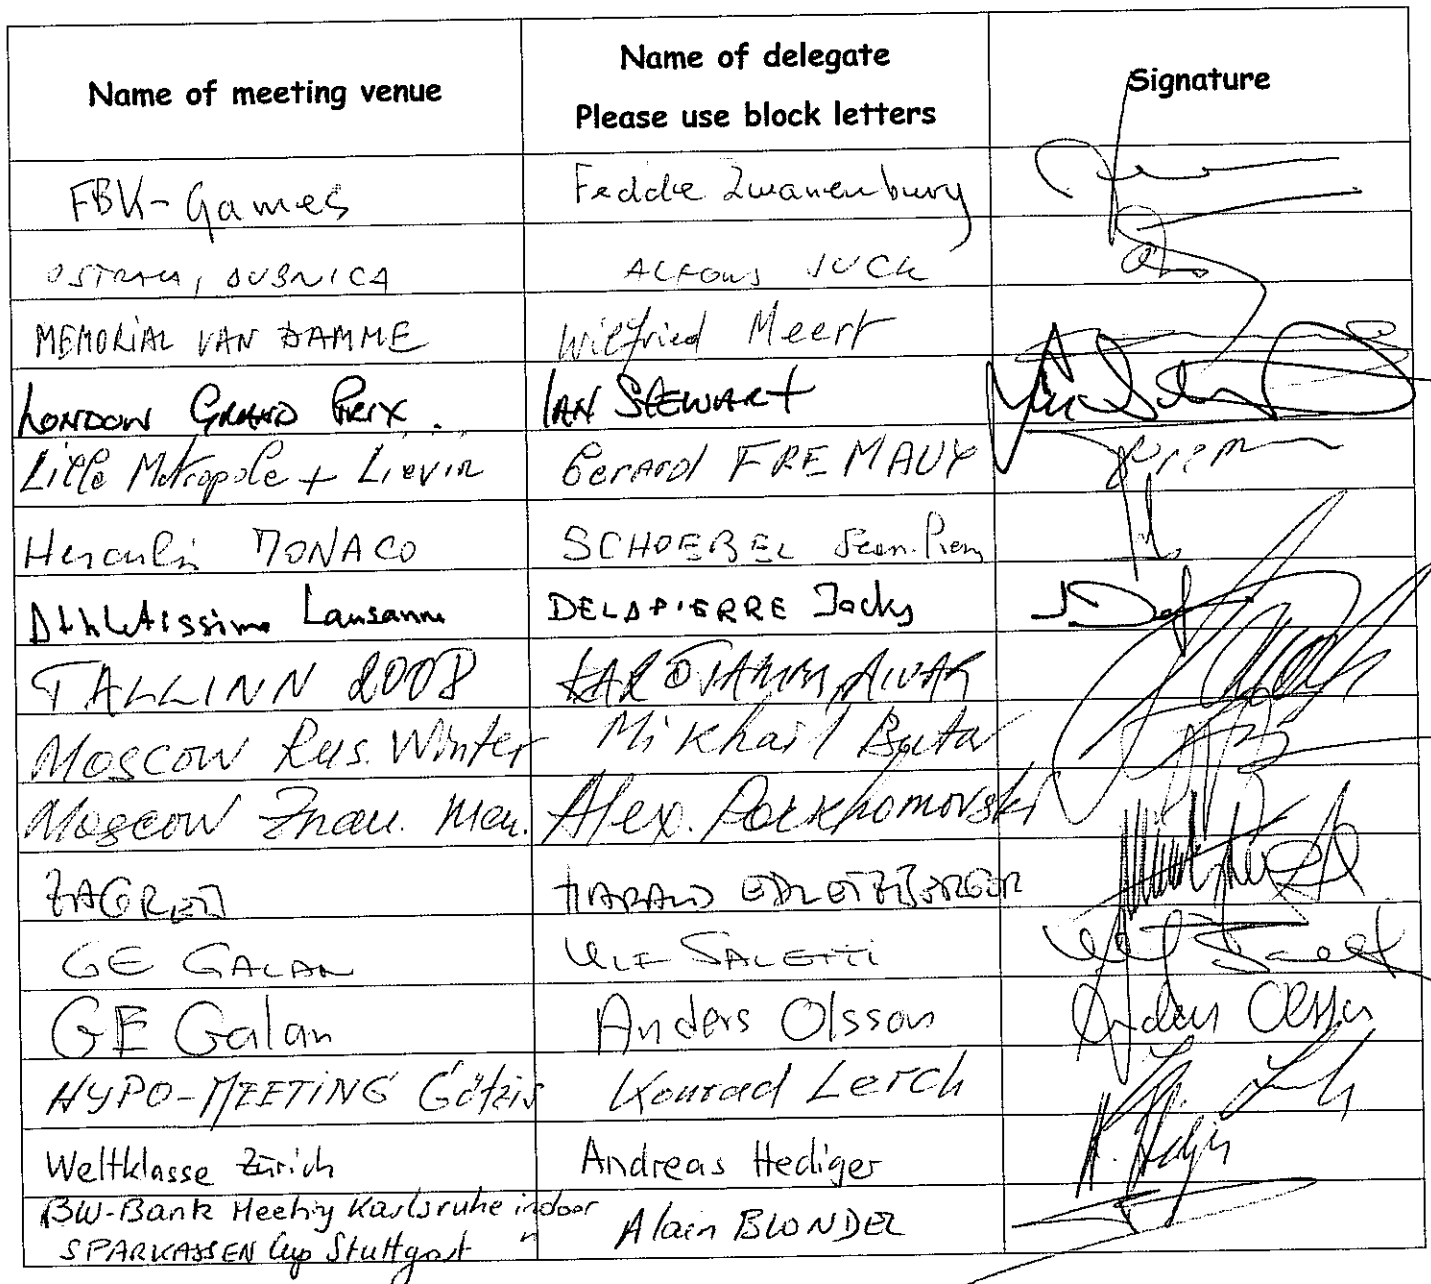 Name of meeting venue
Name of delegate
Please use block letters
Signature
FBK-Games Feddie Zwanenburg
OSTRAVA, DUBNICA ALFONS JUCK
MEMORIAL VAN DAMME Wilfried Meert
LONDON GRAND PRIX. IAN STEWART
Lille Metropole + Lievin Gerard FREMAUX
Herculis MONACO SCHOEBEL Jean-Pierre
Athletissima Lausanne DELAPIERRE Jacky
TALLINN 2008 KAROTAMM, AIVAR
Moscow Rus. Winter Mikhail Butov
Moscow Znam. Mem. Alex. Parkhomovski
ZAGREB HARALD EDLETZBERGER
GE GALAN ULF SALETTI
GE Galan Anders Olsson Anders Olsson
HYPO-MEETING Götzis Konrad Lerch
Weltklasse Zürich Andreas Hediger
BW-Bank Meeting Karlsruhe indoor
SPARKASSEN Cup Stuttgart " Alain BLONDEL